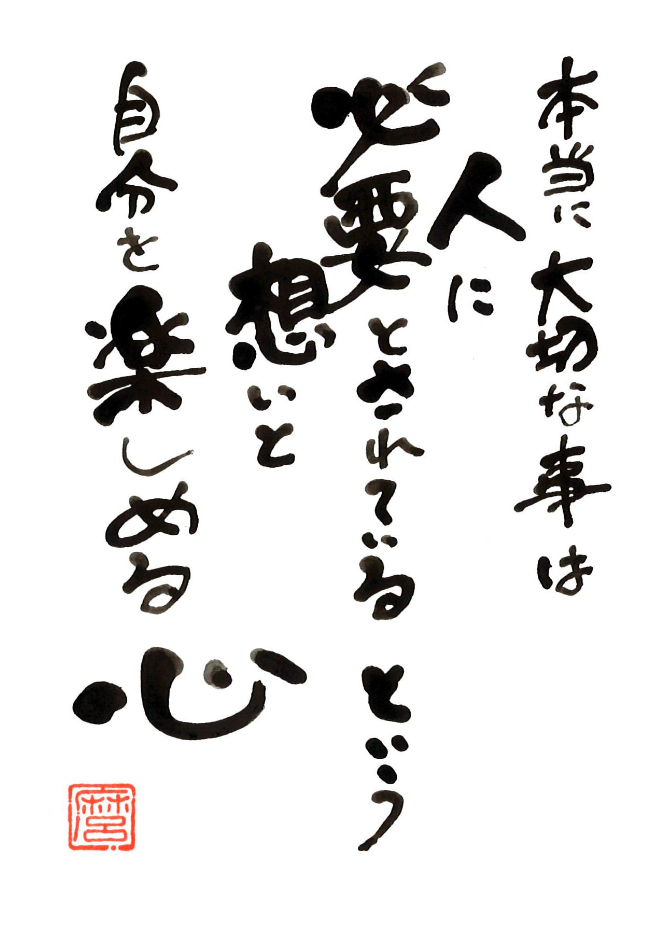 本当に大切な事は
人に
必要とされているという
想いと
自分を楽しめる
心